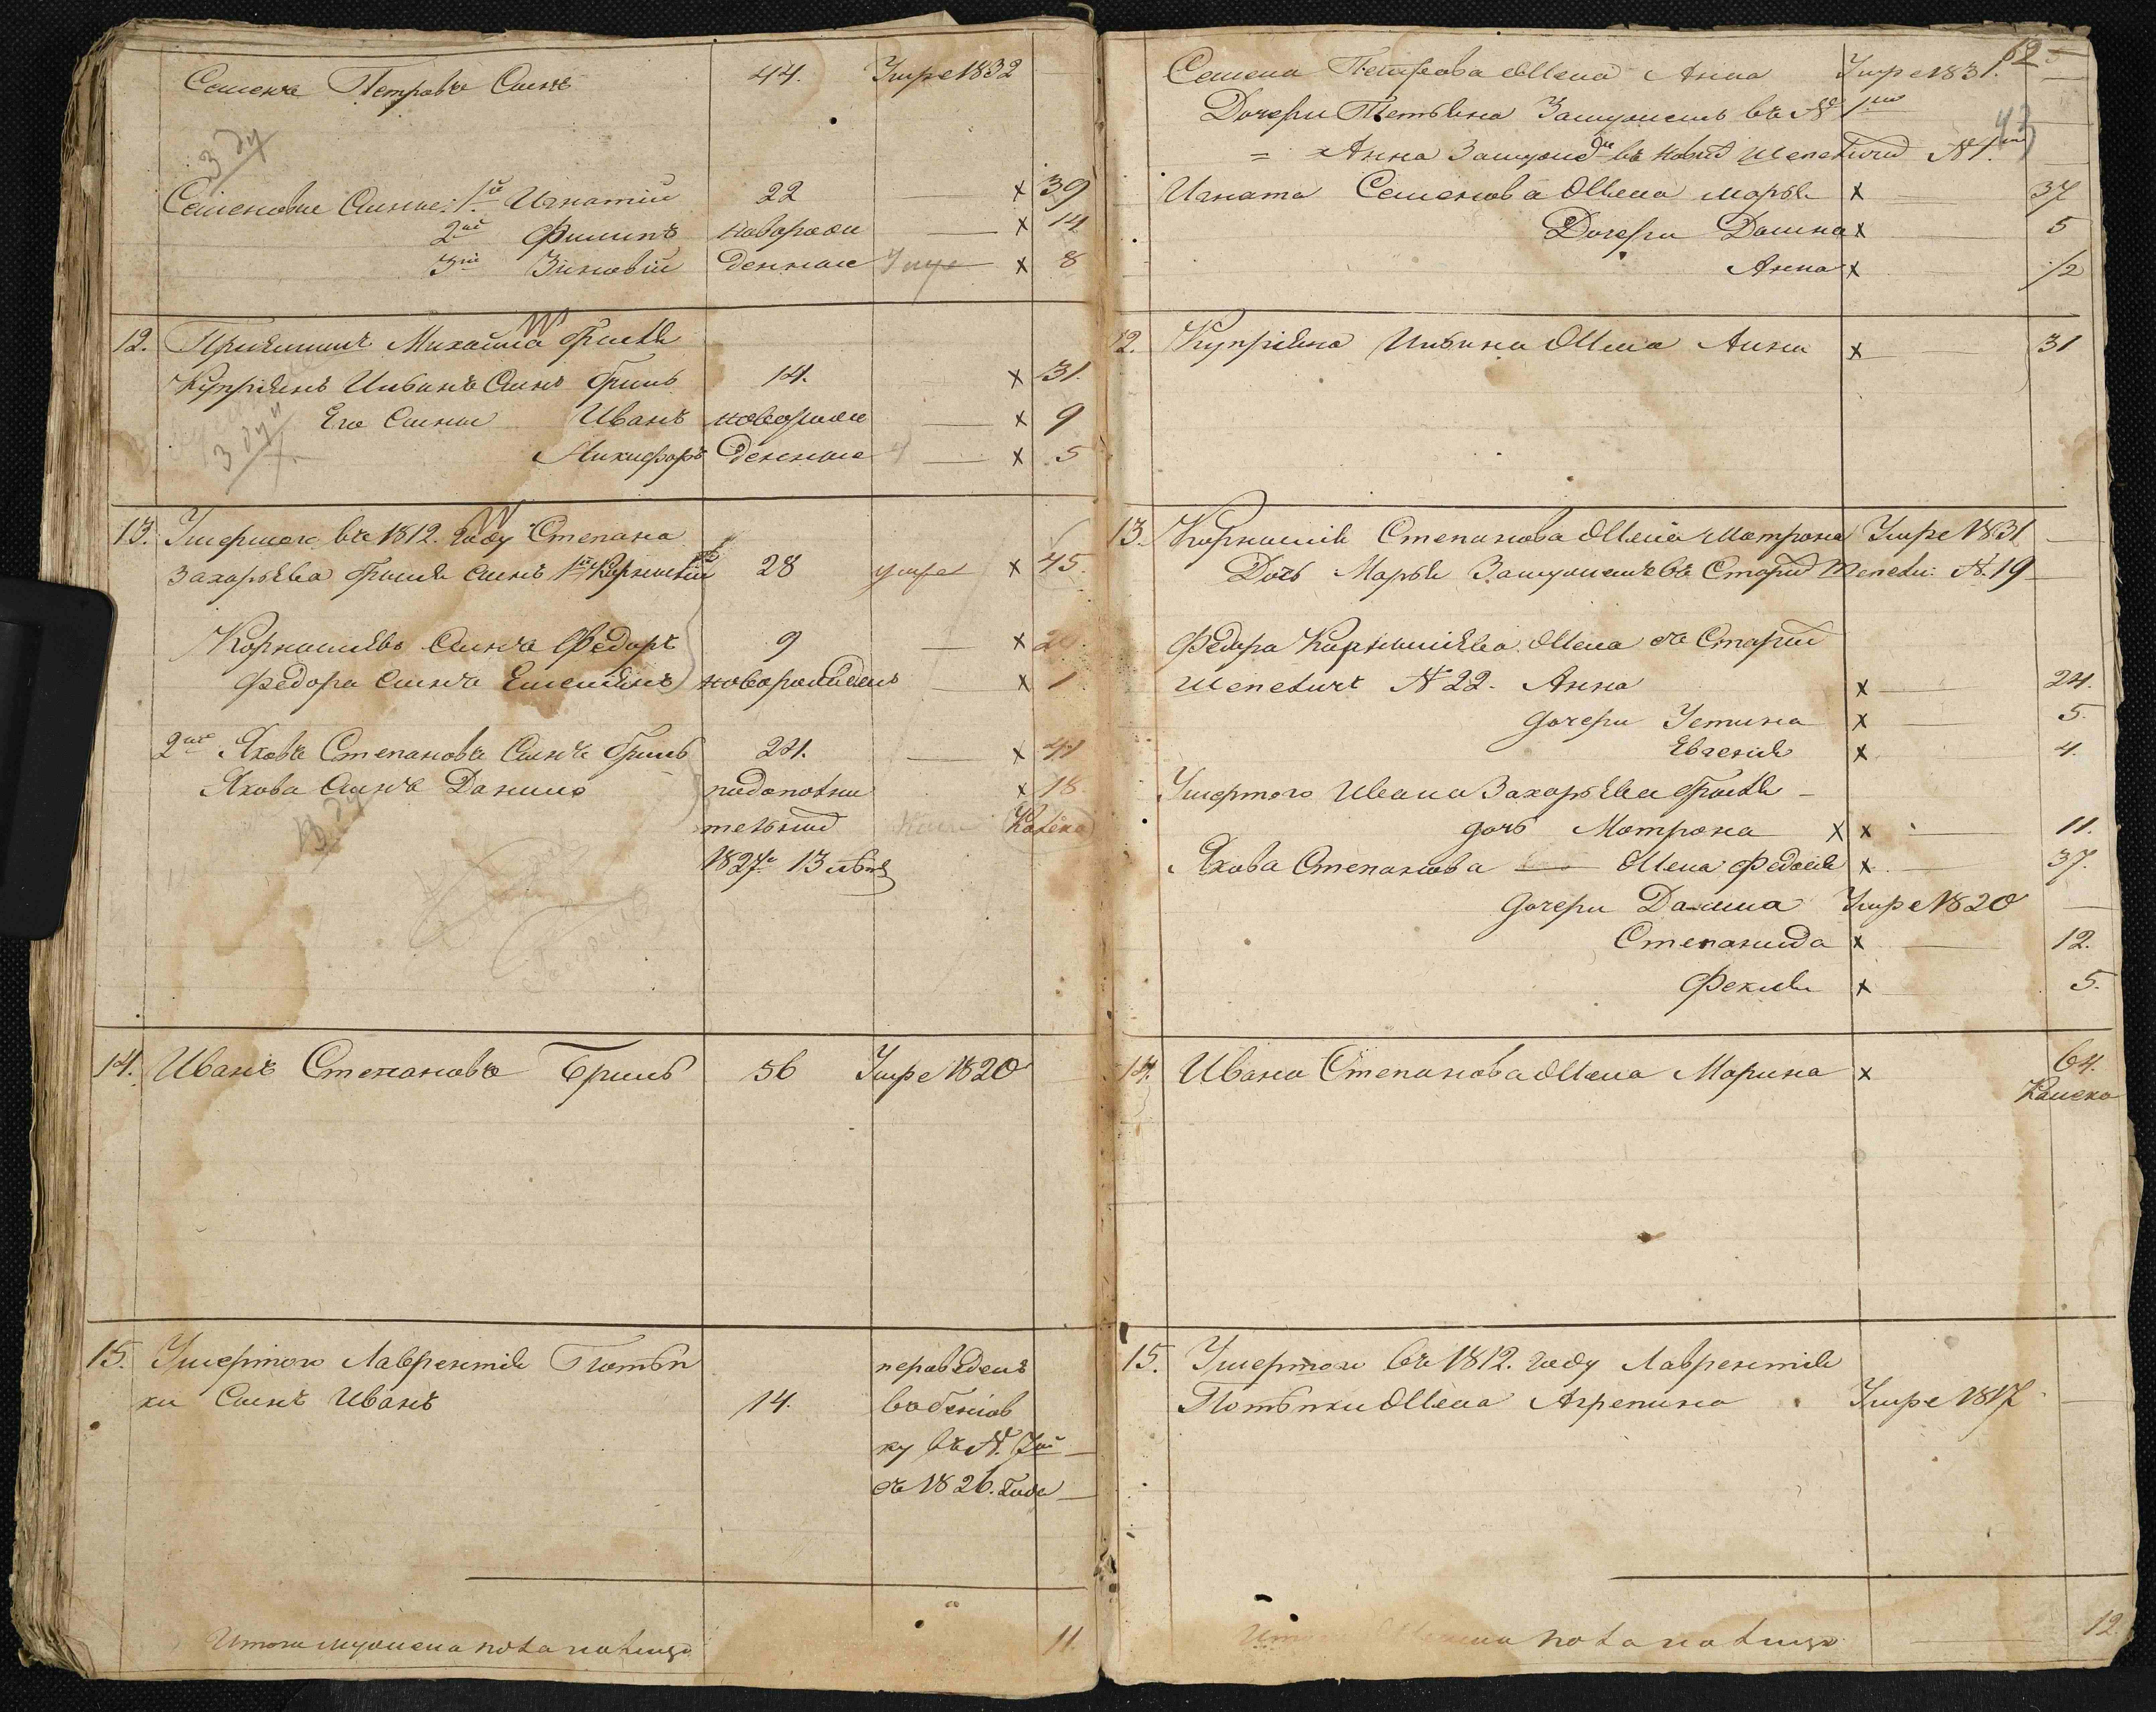 Семенъ Петровъ Сынъ 44. Умре 1832
3 ду
Семеновы Сыны: 1й Игнатій 22 — х 39
2ій Филипъ новорож — х 14
3ій Зиновій денные — х 8
12. Михайла Бриля
Купріянъ Ивановъ Сынъ Бриль 14. х 31.
Его Сыны Иванъ новорож — х 9
Никифоръ денные — х 5
3 ду
13. Умершего въ 1812. году Степана
Захарьева Бриля сынъ 1й Корнилій 28 умре х 45.
Корнильевъ Сынъ Федоръ 9 — х 24.
Федора Сынъ Емельянъ новорожденъ — х 1
2ій Яковъ Степановъ Сынъ Бриль 24. — х 41
Якова Сынъ Данило подополни х 18
тельной
1827го 13 ноября
14. Иванъ Степановъ Бриль 56 Умре 1820
15. Умершого Лаврентія Потѣп переведенъ
ки Сынъ Иванъ 14.
ку въ №.
съ 1826. года —
Итого мужеска пола на лицо 11.
62
43
Семена Петрова жена Анна Умре 1831. —
Дочери Татьяна Замужемъ въ № 1м
= Анна Замуж въ Новой Шепелич № 1м
Игната Семенова жена Марья х — 37
Дочери Домна х — 5
Анна х 1/2
12. Купріяна Ивана жена Анна х — 31
13. Корнилія Степанова жена Матрона Умре 1831 —
Дочь Марья Замужемъ въ Старой Шепели: №. 19 —
Федора Корнильева жена съ Старой
Шепеличъ № 22. Анна х — 24.
дочери Устина х — 5.
Евгенія х 4.
Умершого Ивана Захарьева Бриля —
дочь Матрона х х — 11.
Якова Степанова — жена Федосія х — 37.
дочери Домна Умре 1820 —
Степанида х — 12.
Фекла х 5.
14. Ивана Степанова жена Марина х 64.
15. Умершого въ 1812. году Лаврентія
Потѣпки жена Агрепина Умре 1817 —
Итого женска пола на лицо — 12.